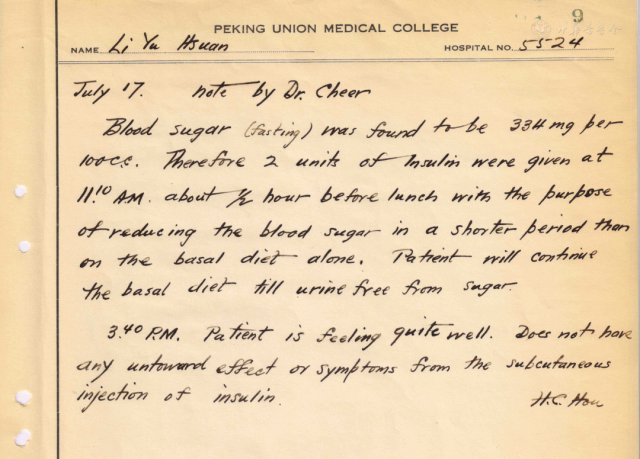 9
PEKING UNION MEDICAL COLLEGE
NAME Li Yu Hsuan HOSPITAL NO. 5524
July 17. note by Dr. Cheer
Blood sugar (fasting) was found to be 334 mg per
100 c.c. Therefore 2 units of Insulin were given at
11.10 A.M. about 1/2 hour before lunch with the purpose
of reducing the blood sugar in a shorter period than
on the basal diet alone. Patient will continue
the basal diet till urine free from sugar.
3.40 P.M. Patient is feeling quite well. Does not have
any untoward effect or symptoms from the subcutaneous
injection of insulin.
H.C. Hou